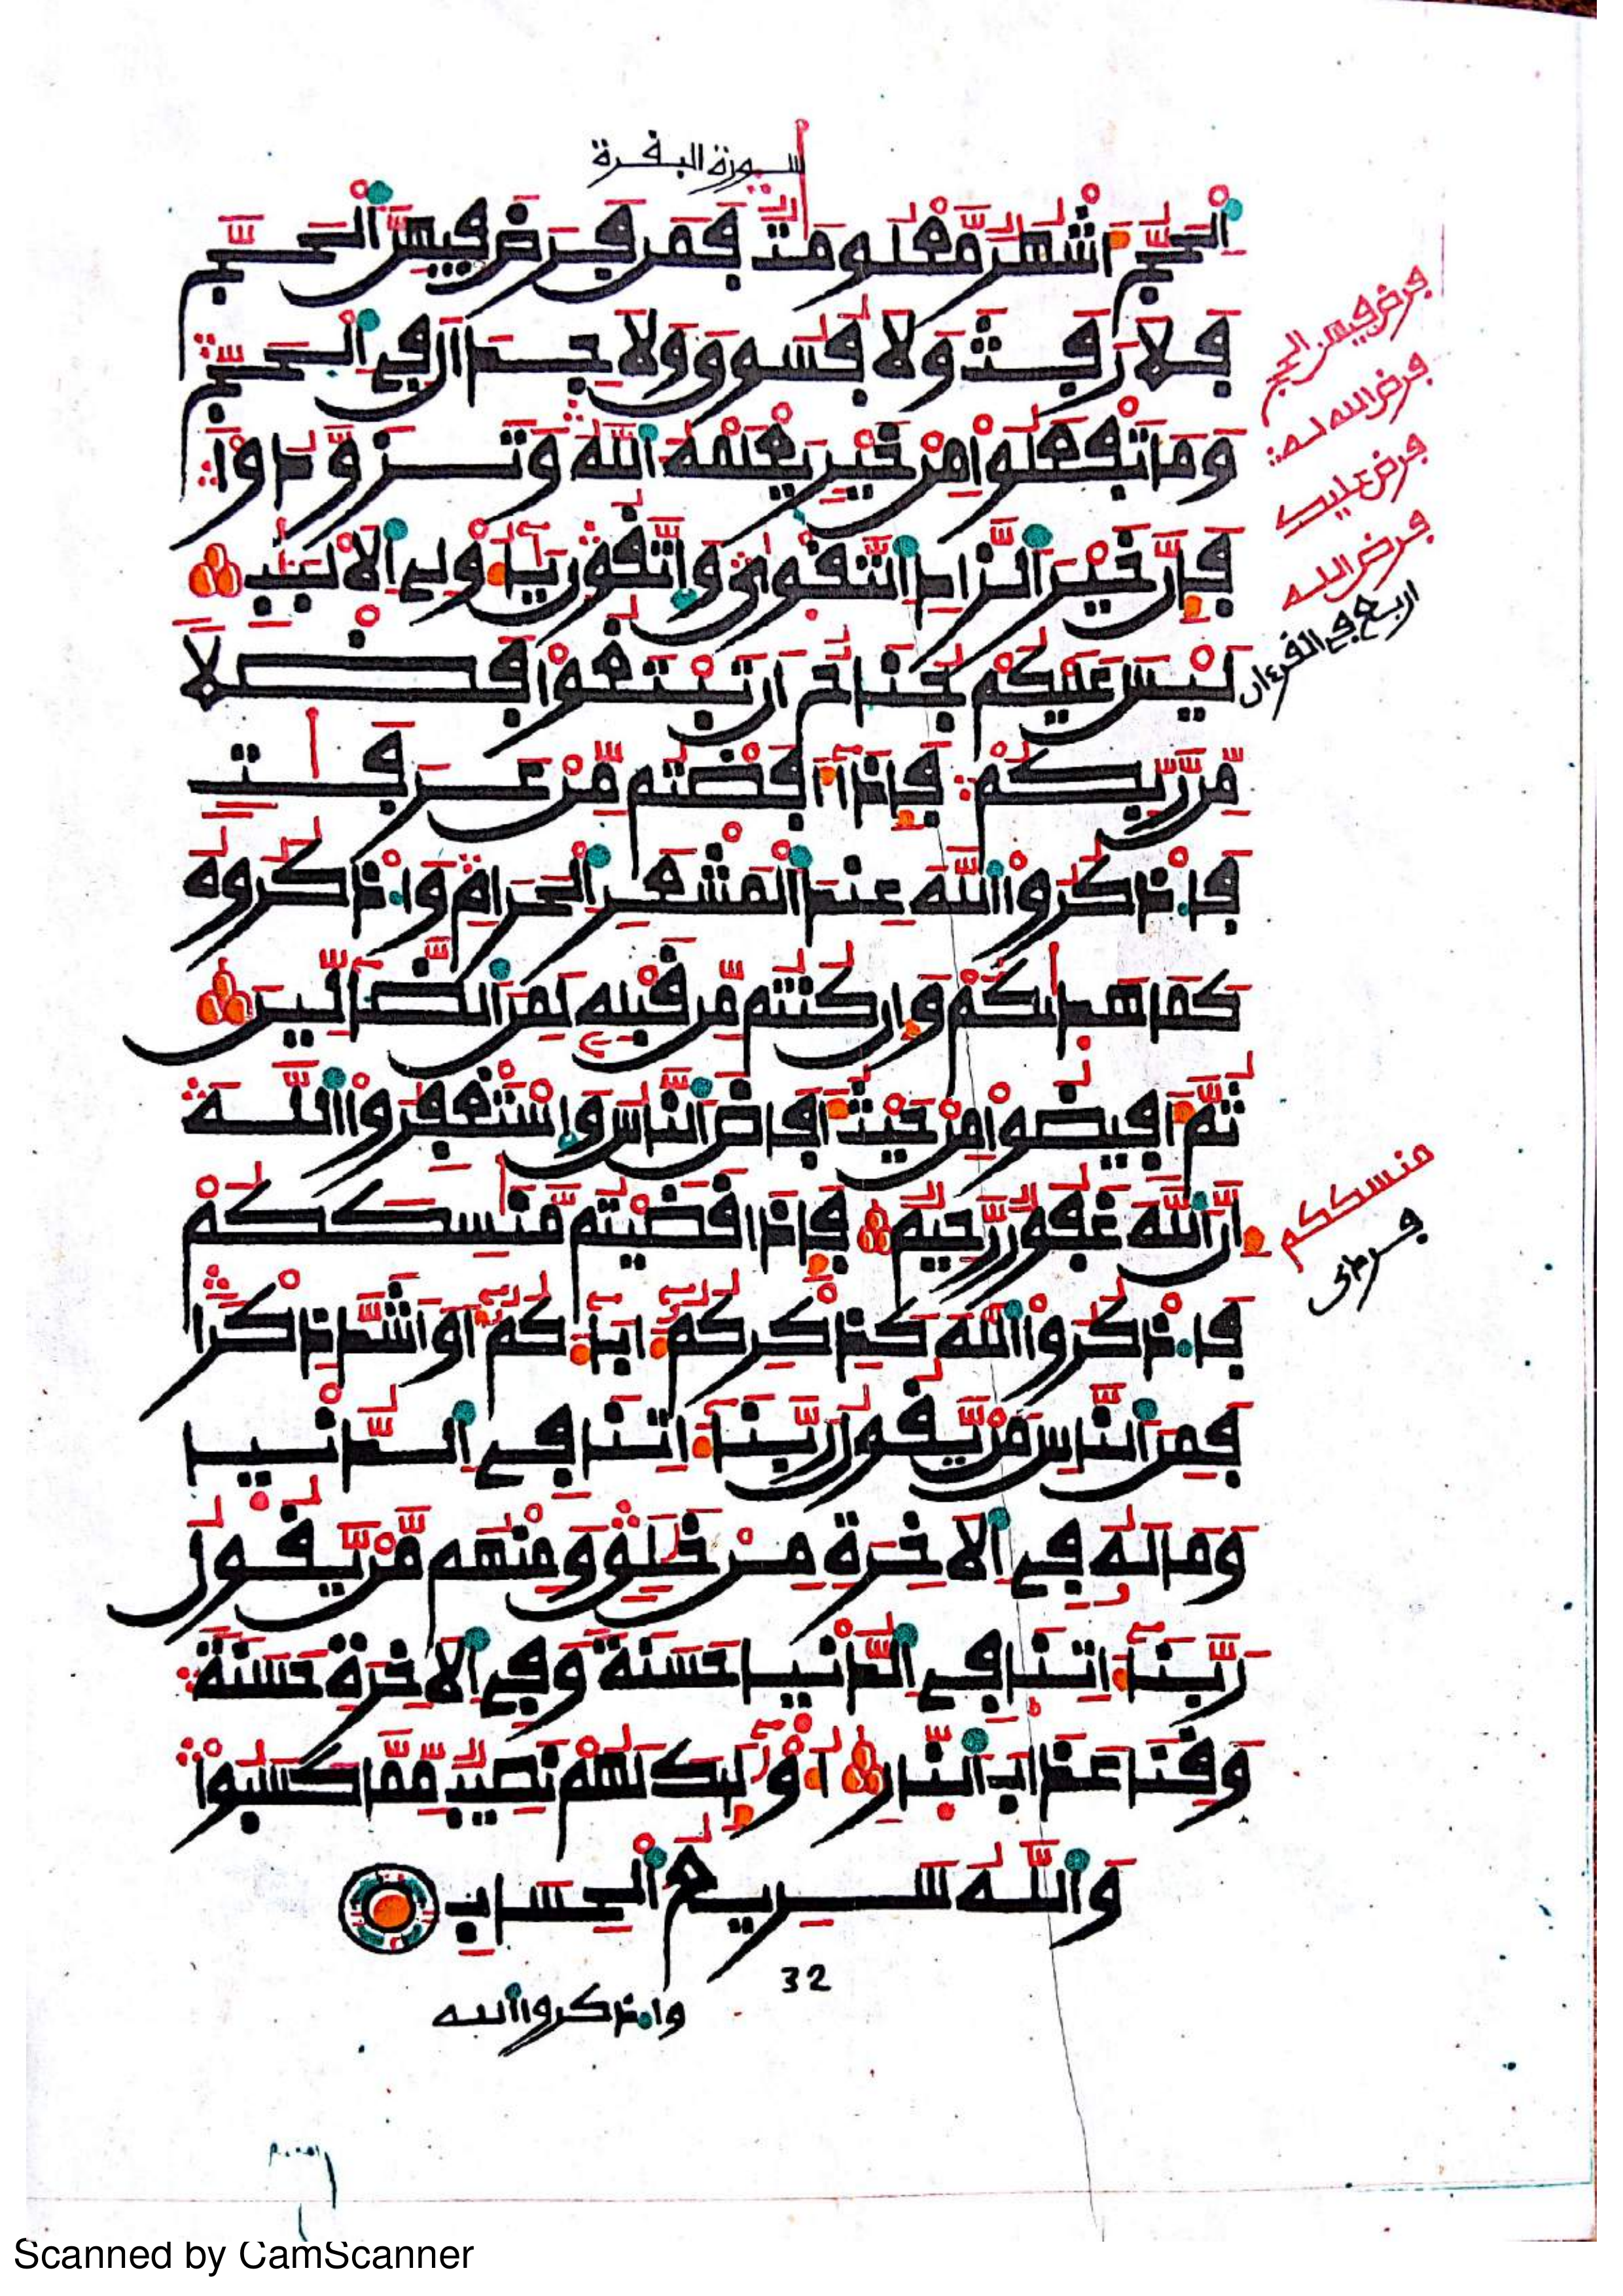 سورة البقرة
اَ۬لْحَجُّ أَشْهُرٞ مَّعْلُومَٰتٞ فَمَن فَرَضَ فِيهِنَّ اَ۬لْحَجَّ
فَلَا رَفَثَ وَلَا فُسُوقَ وَلَا جِدَالَ فِے اِ۬لْحَجِّ
وَمَا تَفْعَلُواْ مِنْ خَيْرٖ يَعْلَمْهُ اُ۬للَّهُ وَتَزَوَّدُواْ
فَإِنَّ خَيْرَ اَ۬لزَّادِ اِ۬لتَّقْوٜىٰ وَاتَّقُونِ يَٰٓأُوْلِے اِ۬لَالْبَٰبِ
لَيْسَ عَلَيْكُمْ جُنَاحٌ أَن تَبْتَغُواْ فَضْلٗا
مِّن رَّبِّكُمْ فَإِذَآ أَفَضْتُم مِّنْ عَرَفَٰتٖ
فَاذْكُرُواْ اُ۬للَّهَ عِندَ اَ۬لْمَشْعَرِ اِ۬لْحَرَامِ وَاذْكُرُوهُ
كَمَا هَدٜىٰكُمْ وَإِن كُنتُم مِّن قَبْلِهِۦ لَمِنَ اَ۬لضَّآلِّينَ
ثُمَّ أَفِيضُواْ مِنْ حَيْثُ أَفَاضَ اَ۬لنَّاسُ وَاسْتَغْفِرُواْ اُ۬للَّهَ
إِنَّ اَ۬للَّهَ غَفُورٞ رَّحِيمٞ فَإِذَا قَضَيْتُم مَّنَٰسِكَكُمْ
فَاذْكُرُواْ اُ۬للَّهَ كَذِكْرِكُمُۥٓ ءَابَآءَكُمُۥٓ أَوَ اَشَدَّ ذِكْرٗا
فَمِنَ اَ۬لنَّاسِ مَنْ يَّقُولُ رَبَّنَآ ءَاتِنَا فِے اِ۬لدُّنْيَا
وَمَا لَهُۥ فِے اِ۬لَاخِرَةِ مِنْ خَلَٰقٖ وَمِنْهُم مَّنْ يَّقُولُ
رَبَّنَآ ءَاتِنَا فِے اِ۬لدُّنْيَا حَسَنَةٗ وَفِے اِ۬لَاخِرَةِ حَسَنَةٗ
وَقِنَا عَذَابَ اَ۬لنَّارِ أُوْلَٰٓئِكَ لَهُمْ نَصِيبٞ مِّمَّا كَسَبُواْ
وَاللَّهُ سَرِيعُ اُ۬لْحِسَابِ
32
واذكروا الله
فرض فيهن الحج
فرض الله له
فرض عليك
فرض الله
اربع في القرءان
منسككم
Scanned by CamScanner